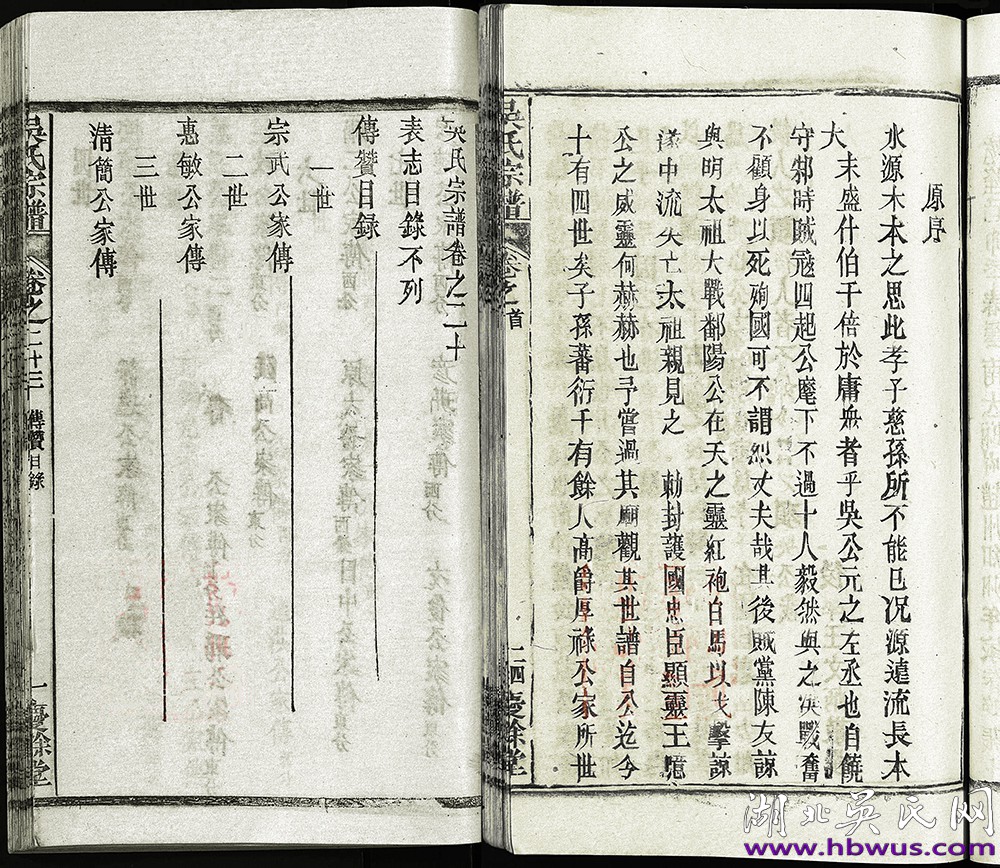 原序
水源木本之思此孝子慈孫所不能已况源遠流長本
大末盛什伯千倍於庸衆者乎吳公元之左丞也自饒
守鄀時賊冦四起公麾下不過十人毅然與之渶戰奮
不顧身以死殉國可不謂烈丈夫哉其後賊黨陳友諒
與明太祖大戰鄱陽公在天之靈紅袍白馬以戈擊諒
中流矢亡太祖親見之 勅封護國忠臣顯靈王
公之威靈何赫赫也予嘗過其廟觀其世譜自公迄今
十有四世矣子孫蕃衍千有餘人高爵厚祿公家所世
吳氏宗譜 卷之首 慶餘堂
吳氏宗譜卷之二十
表志目錄不列
傳贊目録
一世
宗武公家傳
二世
惠敏公家傳
三世
清簡公家傳
吳氏宗譜 卷之二十三 傳贊目録 一 慶餘堂
湖北吳氏网
www.hbwus.com